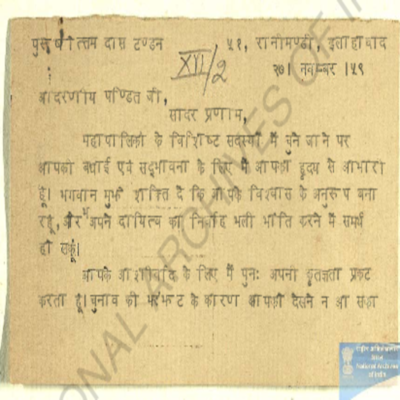 पुरुषोत्तम दास टण्डन ५१, रानीमण्डी, इलाहाबाद
XVI/2 २७। नवम्बर ।५९
आदरणीय पण्डित जी,
सादर प्रणाम,
महापालिका के विशिष्ट सदस्यों में चुने जाने पर
आपकी बधाई एवं सद्भावना के लिए मैं आपका हृदय से आभारी
हूं। भगवान मुझे शक्ति दे कि आपके विश्वास के अनुरूप बना
रहूं, और अपने दायित्व का निर्वाह भली भांति करने में समर्थ
हो सकूं।
आपके आशीर्वाद के लिए मैं पुनः अपनी कृतज्ञता प्रकट
करता हूं। चुनाव की झंझट के कारण आपको देखने न आ सका
NATIONAL ARCHIVES OF IN
राष्ट्रीय अभिलेखागार
National Archives
of India